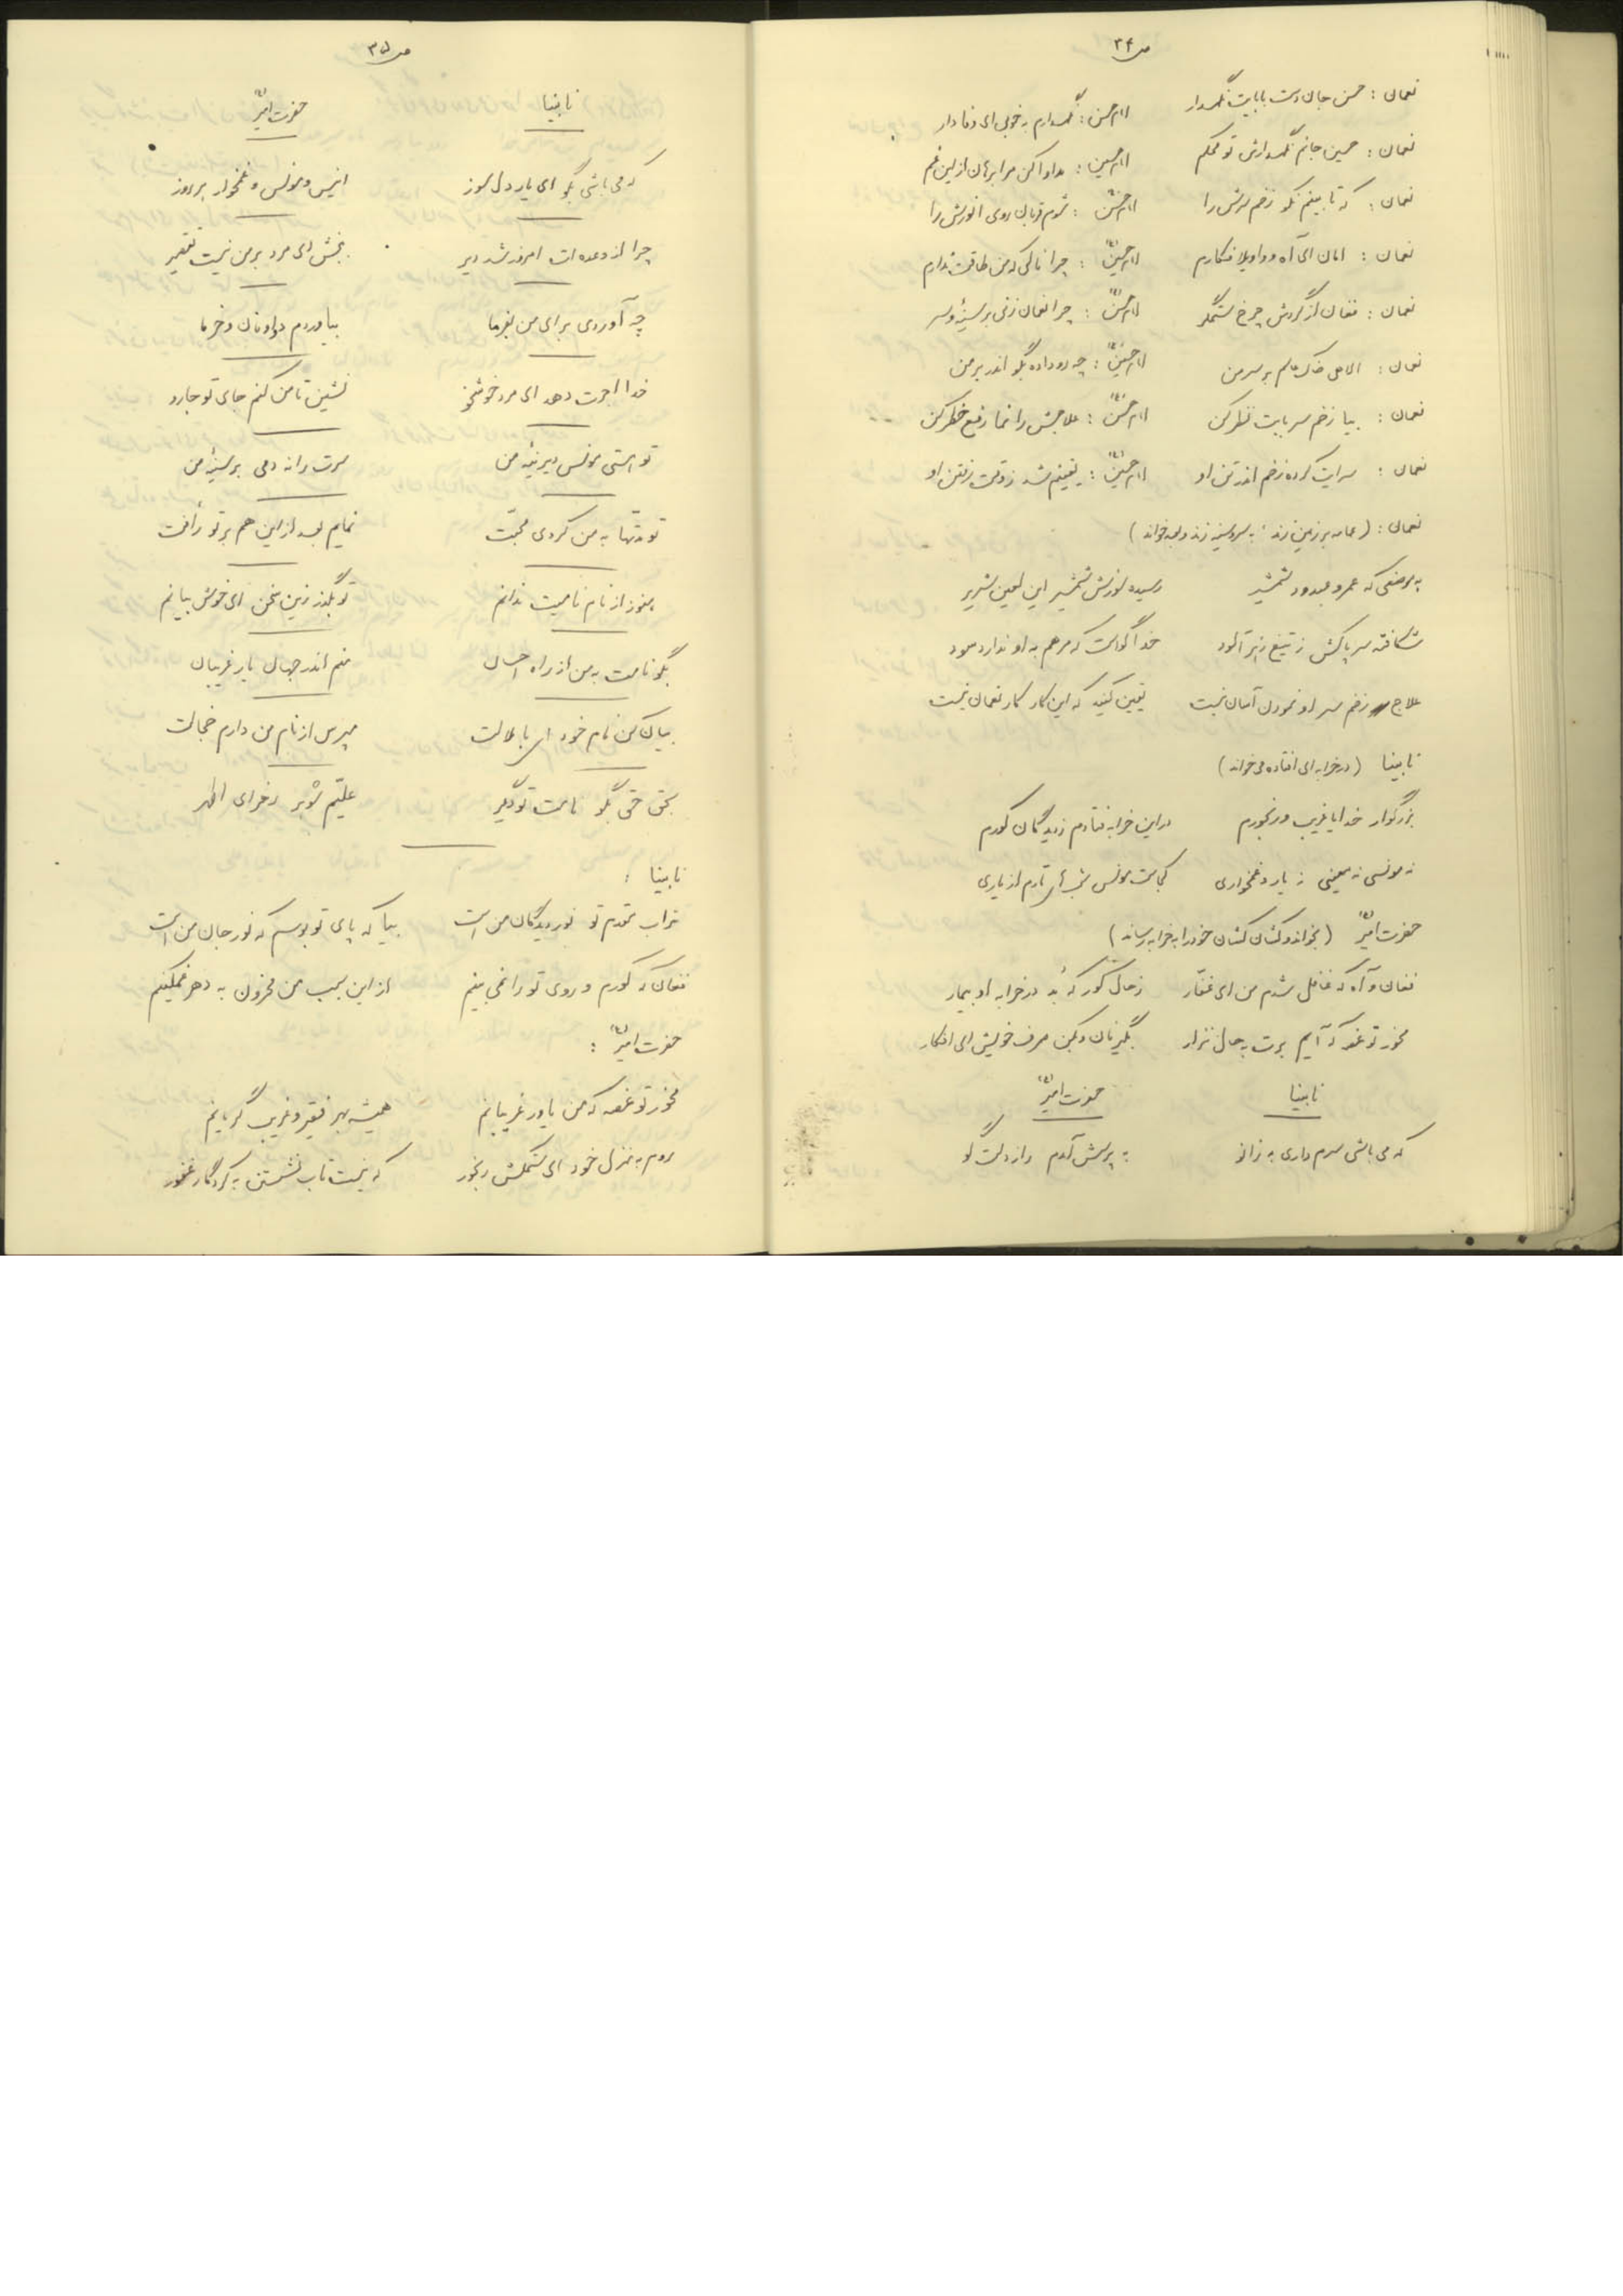 ص ۳۴
نعمان : حسن جان دست بابایت نگهدار امام حسن : نگهدارم به خوبی ای وفادار
نعمان : حسین جانم نگهدارش تو محکم امام حسین : مداوا کن مرا برهان از این غم
نعمان : که تا بینم نکو زخم سرش را امام حسن : شوم قربان روی انورش را
نعمان : امان ای آه و واویلا فکارم امام حسین : چرا نالی که من طاقت ندارم
نعمان : فغان از گردش چرخ ستمگر امام حسن : چرا نعمان زنی بر سینه و سر
نعمان : الاهی خاک عالم بر سر من امام حسین : چه رو داده بگو اندر بر من
نعمان : بیا زخم سر بابت نظر کن امام حسن : علاجش را نما رفع خطر کن
نعمان : سرایت کرده زخم اندر تن او امام حسین : یقینم شد ز وقت رفتن او
نعمان : (عمامه بر زمین زند ، به سر و سینه زند و بعد خواند)
به موضعی که عمرو عبدود شمشیر رسیده ضربش شمشیر این لعین شریر
شکافته سر پاکش ز تیغ زهرآلود خدا گواست که مرهم به او ندارد سود
علاج زخم سر او نمودن آسان نیست یقین کنید که این کار کار نعمان نیست
نابینا (در خرابه ای افتاده می خواند)
بزرگوار خدایا غریب و رنجورم در این خرابه فتادم ز دیدگان کورم
نه مونسی نه معینی نه یار و غمخواری کجاست مونس شبهای تارم از یاری
حضرت امیر (بخواند و کشان کشان خود را به خرابه رساند)
فغان و آه که غافل شدم من ای غفّار ز حال کور که بُد در خرابه او بیمار
مخور تو غم که آیم برت به حال نزار بگیر نان و بکن صرف خویش ای افکار
نابینا حضرت امیر
که می باشی سرم داری به زانو به پرسش آمدم راز دلت گو
ص ۳۵
نابینا حضرت امیر
که می باشی بگو ای یار دل سوز انیس و مونس و غمخوار هر روز
چرا از وعده ات امروز شد دیر ببخش ای مرد بر من نیست تقصیر
چه آوردی برای من بفرما بیاوردم دوا و نان و خرما
خدا اجرت دهد ای مرد خوشخو نشین تا من کنم جای تو جارو
تو استی مونس دیرینهٔ من سرت را نه دمی بر سینهٔ من
تو مدّتها به من کردی محبّت نمایم بعد از این هم بر تو رأفت
هنوز از نام نامیت ندانم تو بگذر زین سخن ای خوش بیانم
بگو نامت به من از راه احسان منم اندر جهان یار غریبان
بیان کن نام خود ای با جلالت مپرس از نام من دارم خجالت
بحق حق بگو نامت تو دیگر علیّم شوهر زهرای اطهر
نابینا :
تراب مقدم تو نور دیدگان من است بیا که پای تو بوسم که نور جان من است
فغان که کورم و روی تو را نمی بینم از این سبب من محزون به دهر غمگینم
حضرت امیر :
مخور تو غصه که من یاور غریبانم همیشه بهر فقیر و غریب گریانم
روم به منزل خود ای ستمکش رنجور که نیست تاب نشستن به کردگار غفور